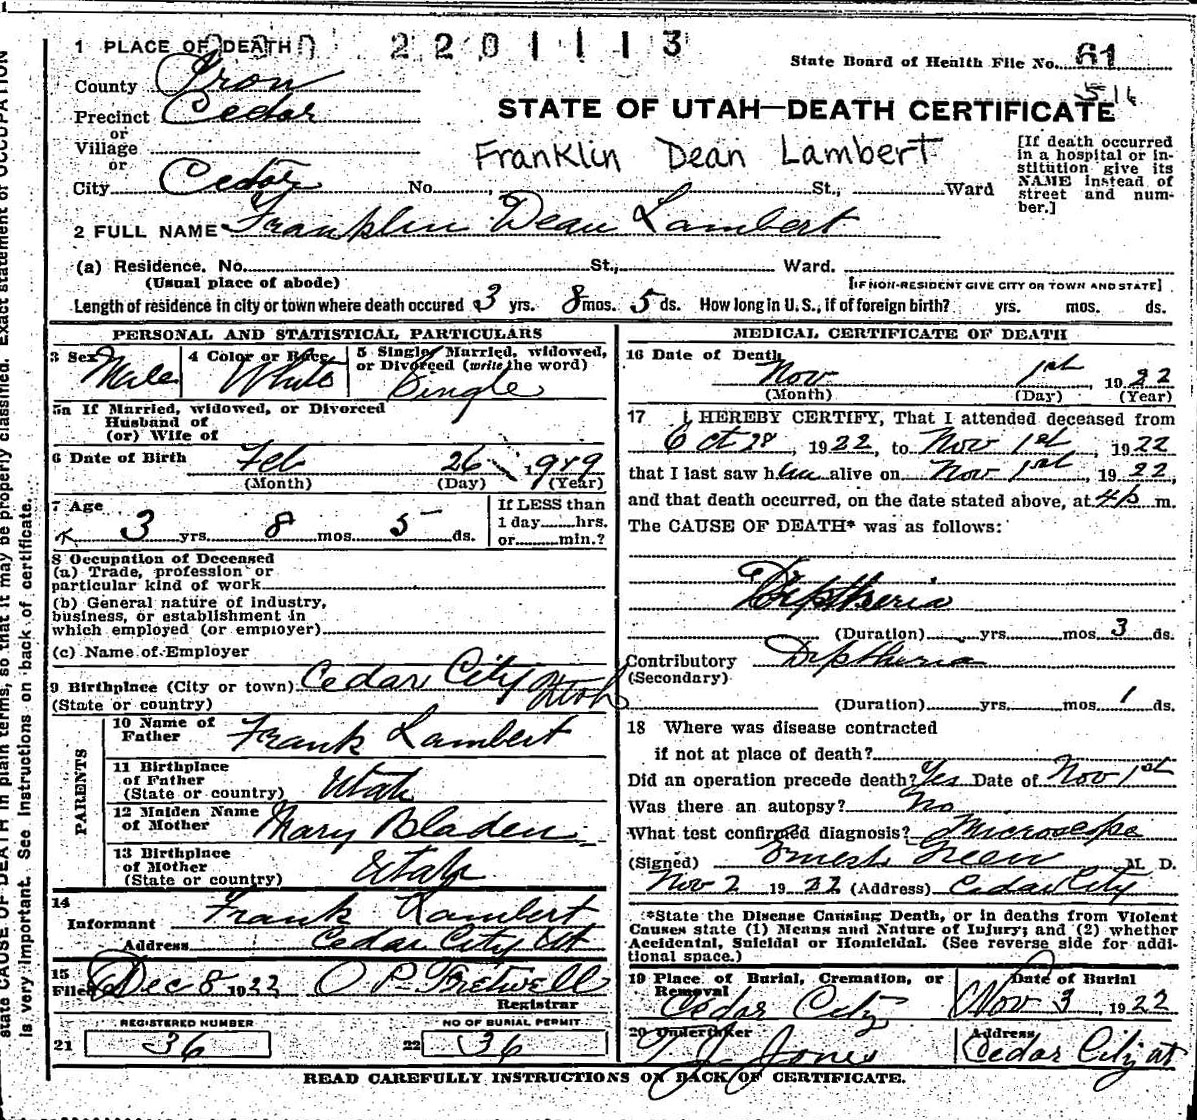 1 PLACE OF DEATH 2201113
State Board of Health File No. 61
County Iron
516
Precinct Cedar
STATE OF UTAH—DEATH CERTIFICATE
or
Village
or
Franklin Dean Lambert
[If death occurred in a hospital or in-stitution give its NAME instead of street and num-ber.]
City Cedar No. , St., Ward
2 FULL NAME Franklin Dean Lambert
(a) Residence. No. St., Ward.
(Usual place of abode) [IF NON-RESIDENT GIVE CITY OR TOWN AND STATE]
Length of residence in city or town where death occured 3 yrs. 8 mos. 5 ds. How long in U. S., if of foreign birth? yrs. mos. ds.
PERSONAL AND STATISTICAL PARTICULARS
3 Sex Male
4 Color or Race White
5 Single, Married, widowed, or Divorced (write the word) Single
5a If Married, widowed, or Divorced
Husband of
(or) Wife of
6 Date of Birth Feb 26 1919
(Month) (Day) (Year)
7 Age 3 yrs. 8 mos 5 ds.
If LESS than
1 day hrs.
or min.?
8 Occupation of Deceased
(a) Trade, profession or
particular kind of work
(b) General nature of industry,
business, or establishment in
which employed (or employer)
(c) Name of Employer
9 Birthplace (City or town) Cedar City Utah
(State or country)
PARENTS
10 Name of Father Frank Lambert
11 Birthplace
of Father Utah
(State or country)
12 Maiden Name
of Mother Mary Bladen
13 Birthplace
of Mother Utah
(State or country)
14
Informant Frank Lambert
Address Cedar City Ut
15
Filed Dec 8 1922 O P Fretwell
Registrar
REGISTERED NUMBER NO OF BURIAL PERMIT
21 36 22 36
MEDICAL CERTIFICATE OF DEATH
16 Date of Death
Nov 1st, 1922
(Month) (Day) (Year)
17 I HEREBY CERTIFY, That I attended deceased from
Oct 28, 1922, to Nov 1st, 1922
that I last saw him alive on Nov 1st, 1922,
and that death occurred, on the date stated above, at m.
The CAUSE OF DEATH* was as follows:
Diptheria
(Duration) yrs. mos 3 ds.
Contributory Diptheria
(Secondary)
(Duration) yrs. mos 1 ds.
18 Where was disease contracted
if not at place of death?
Did an operation precede death? Yes Date of Nov 1st
Was there an autopsy? No
What test confirmed diagnosis? Microscope
(Signed) Ernest Green M. D.
Nov 2 1922 (Address) Cedar City
*State the Disease Causing Death, or in deaths from Violent
Causes state (1) Means and Nature of Injury; and (2) whether
Accidental, Suicidal or Homicidal. (See reverse side for addi-
tional space.)
19 Place of Burial, Cremation, or Removal Cedar City
Date of Burial
Nov 3, 1922
20 Undertaker
T J Jones
Address
Cedar City Ut
READ CAREFULLY INSTRUCTIONS ON BACK OF CERTIFICATE.
state CAUSE OF DEATH in plain terms, so that it may be properly classified. Exact statement of OCCUPATION
is very important. See instructions on back of certificate.